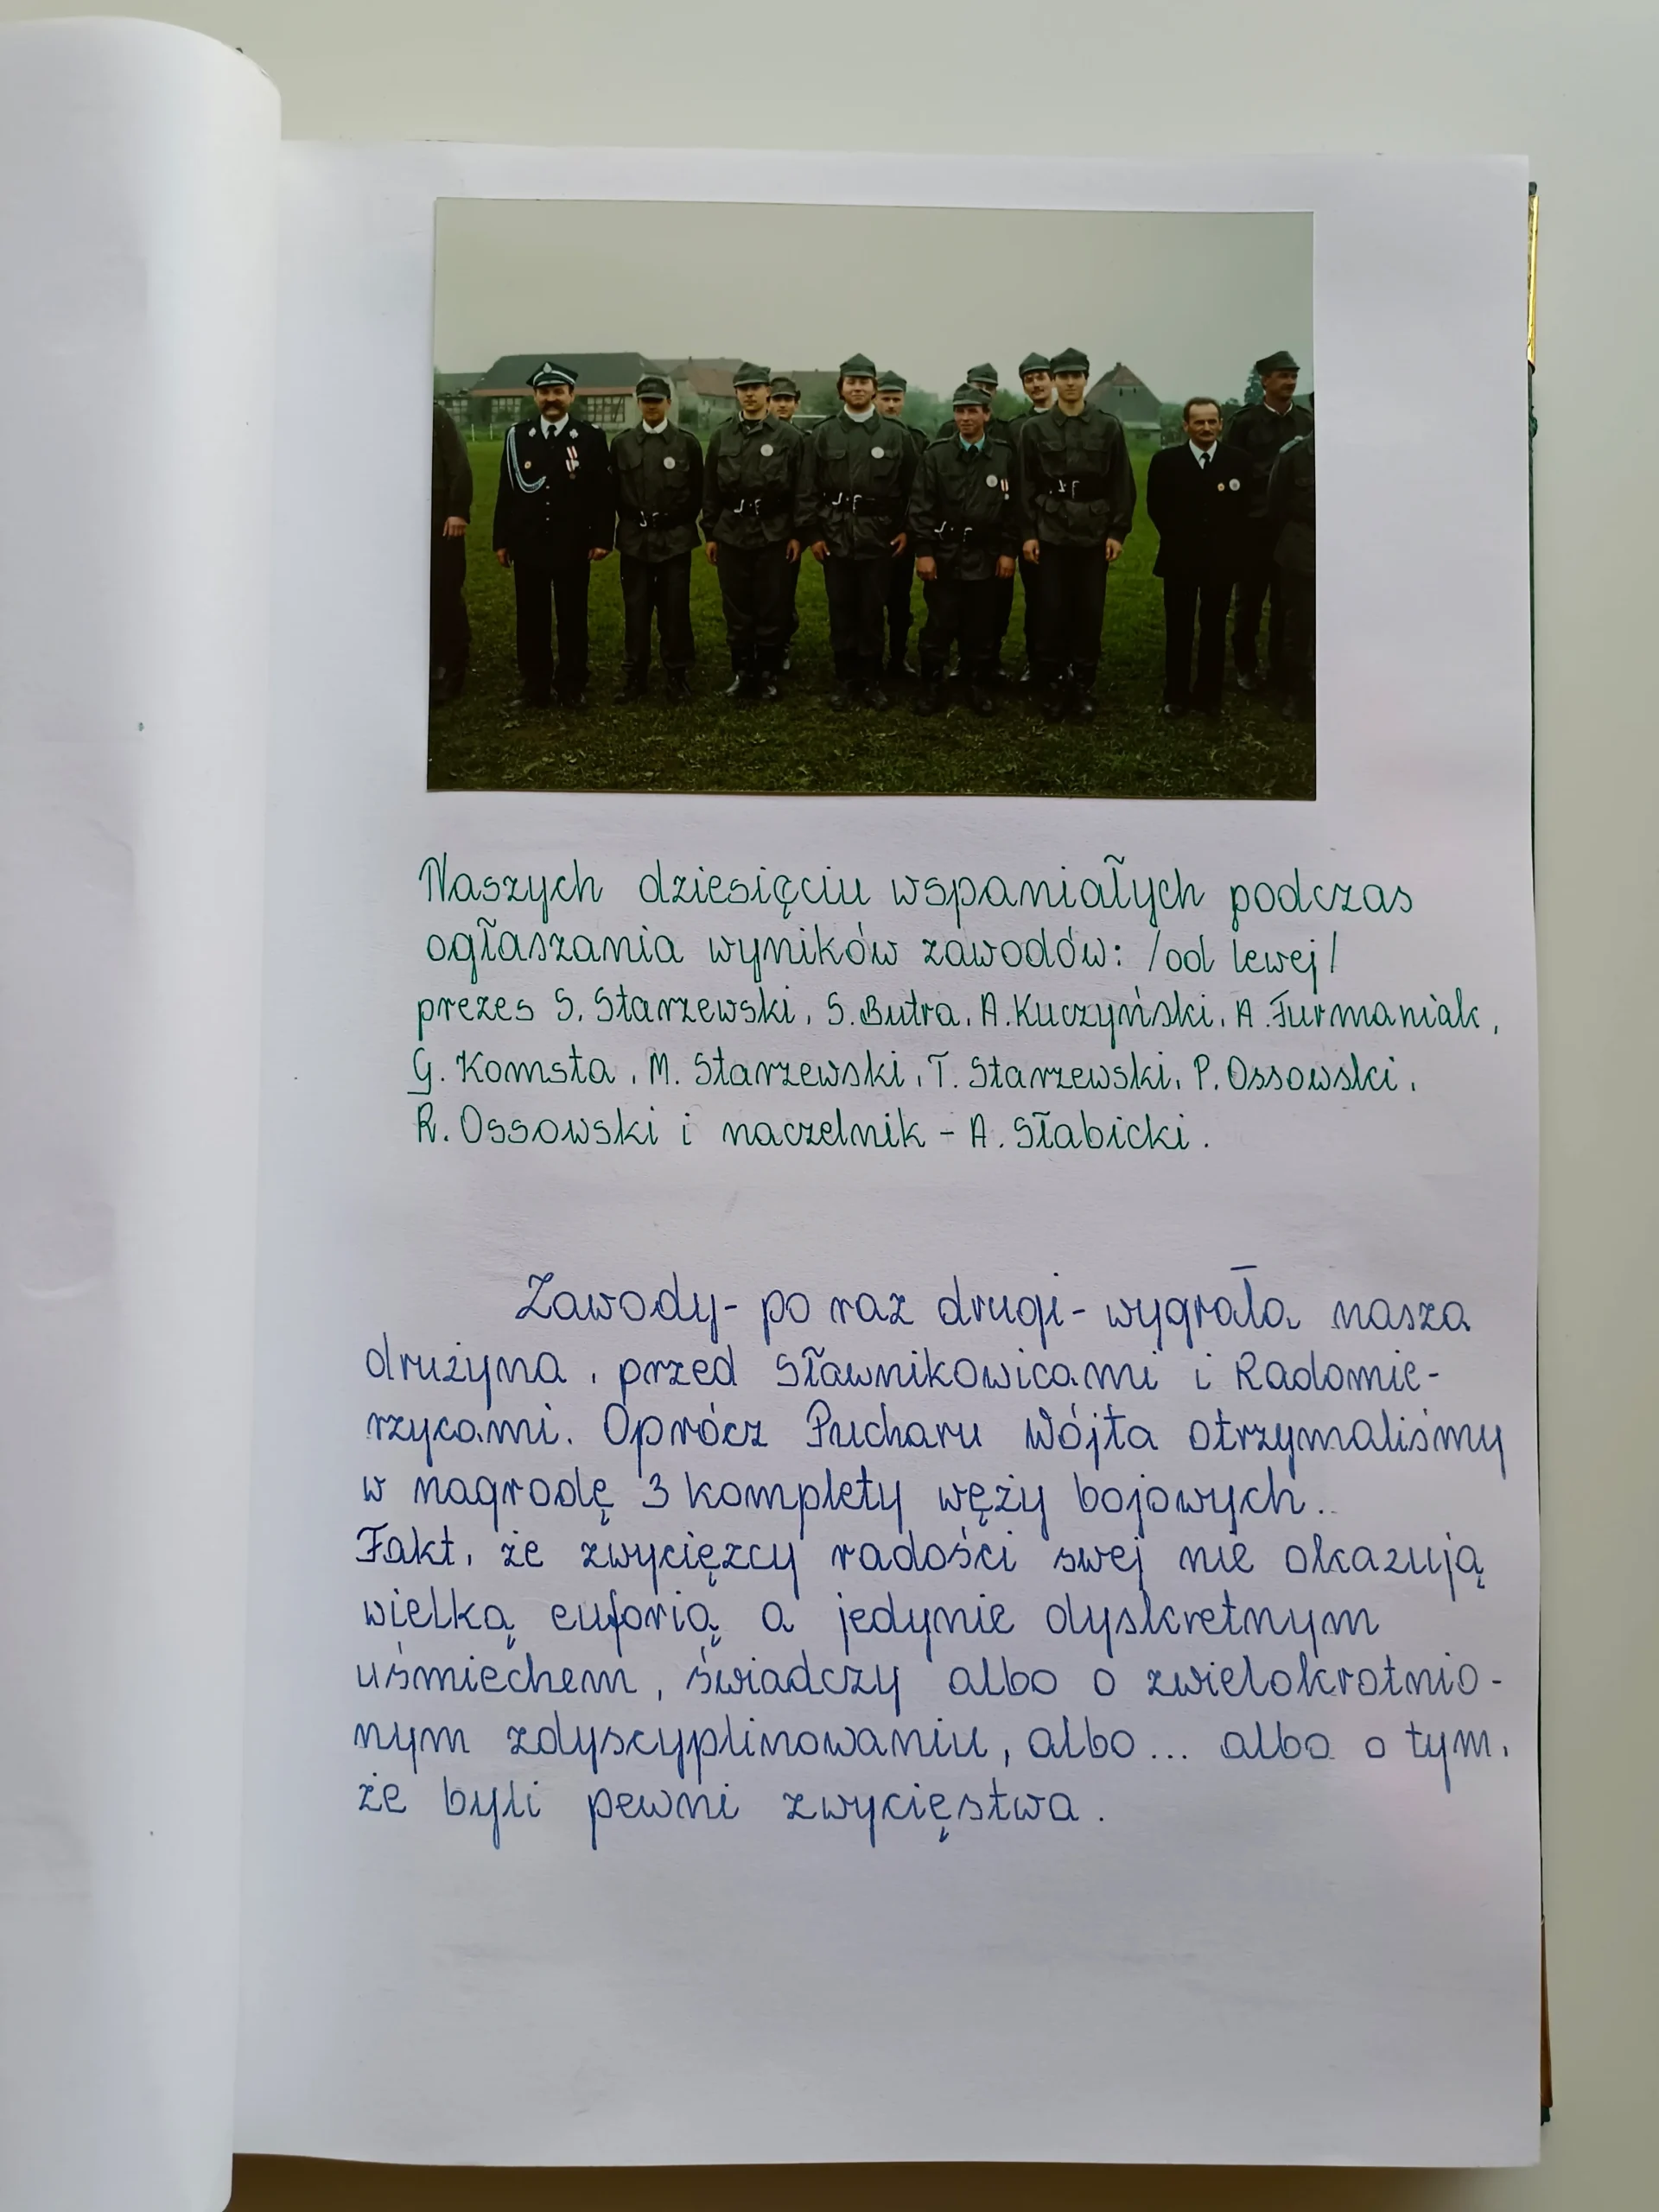 Naszych dziesięciu wspaniałych podczas
ogłaszania wyników zawodów: /od lewej/
prezes S. Starzewski, S. Butra, A. Kuczyński, A. Furmaniak,
G. Komsta, M. Starzewski, T. Starzewski, P. Ossowski,
R. Ossowski i naczelnik - A. Słabicki.
Zawody - po raz drugi - wygrała nasza
drużyna, przed Sławnikowicami i Radomie-
rzycami. Oprócz Pucharu Wójta otrzymaliśmy
w nagrodę 3 komplety węży bojowych..
Fakt, że zwycięzcy radości swej nie okazują
wielką euforią a jedynie dyskretnym
uśmiechem, świadczy albo o zwielokrotnio-
nym zdyscyplinowaniu, albo... albo o tym,
że byli pewni zwycięstwa.